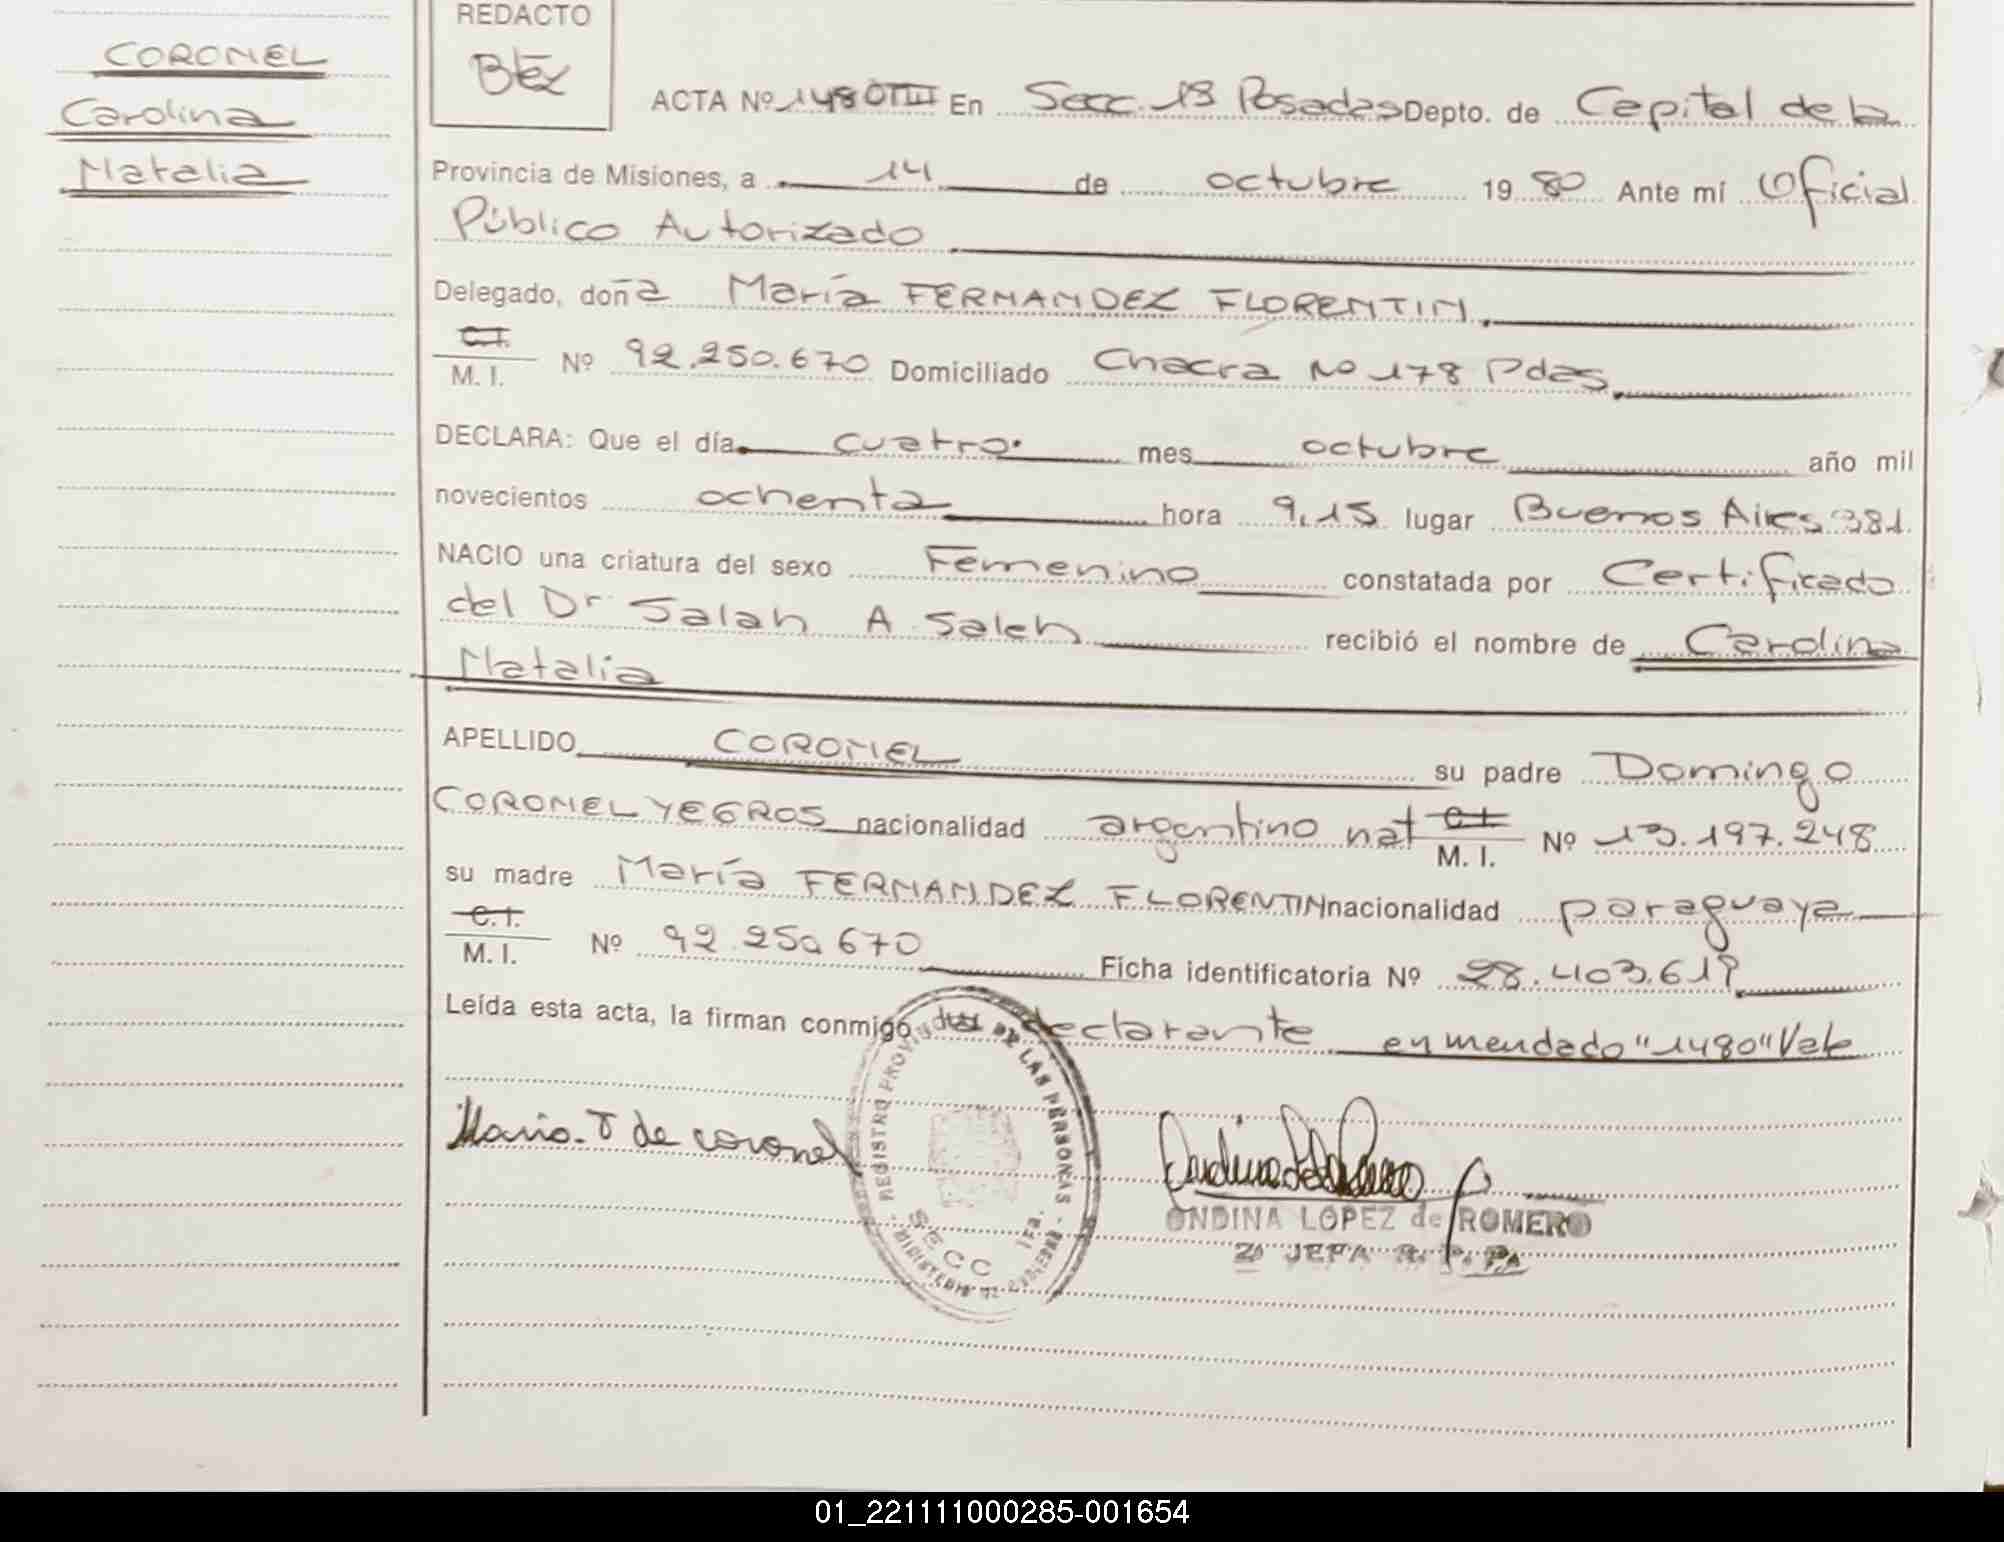 REDACTO
Bëz
CORONEL
Carolina
Natalia
ACTA Nº 1480TIII En Secc. 1ª Posadas Depto. de Capital de la
Provincia de Misiones, a 14 de octubre 1980 Ante mí Oficial
Público Autorizado
Delegado, doña María FERNANDEZ FLORENTIN.
C.I.
M. I. Nº 92.250.670 Domiciliado Chacra Nº 178 Pdas.
DECLARA: Que el día cuatro mes octubre año mil
novecientos ochenta hora 9,15 lugar Buenos Aires 381
NACIO una criatura del sexo Femenino constatada por Certificado
del Dr Salah A. Saleh recibió el nombre de Carolina
Natalia
APELLIDO CORONEL su padre Domingo
CORONEL YEGROS nacionalidad argentino nat C.I. M. I. Nº 13.197.248
su madre María FERNANDEZ FLORENTIN nacionalidad paraguaya
C.I.
M. I. Nº 92.250.670 Ficha identificatoria Nº 28.403.619
Leída esta acta, la firman conmigo declarante enmendado "1480" Vale
Maria. F de coronel
REGISTRO PROVINCIAL DE LAS PERSONAS - MINISTERIO DE GOBIERNO -
SECC 1ra.
ONDINA LOPEZ de ROMERO
2ª JEFA R. P. P.
01_221111000285-001654